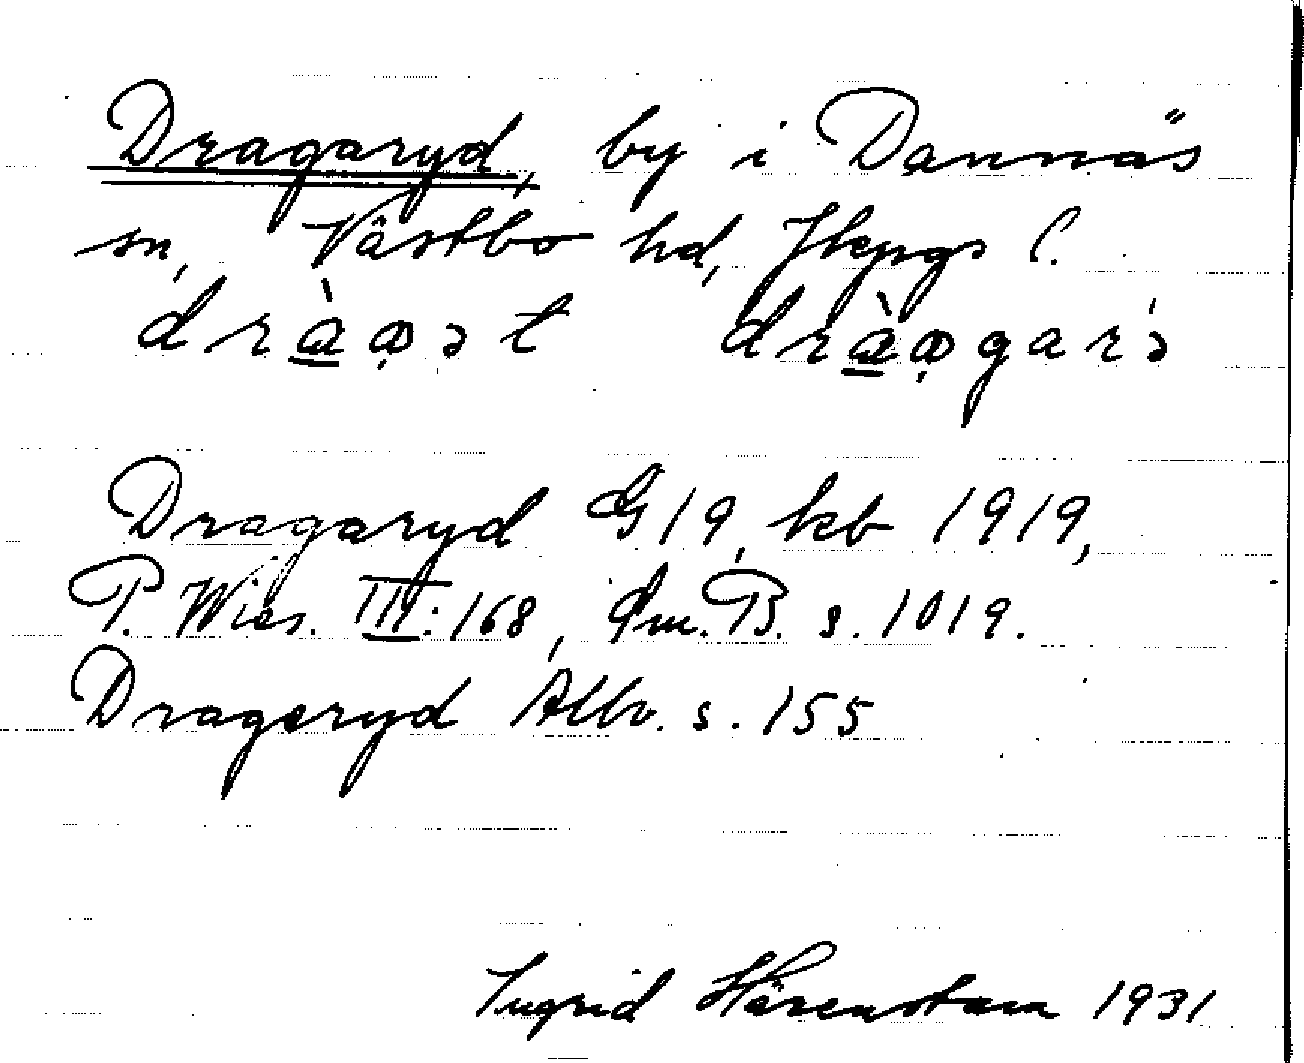 Dragaryd, by i Dannäs
sn, Västbo hd, Jkpgs l.
dràa̤ət dràa̤garə
Dragaryd G19, kb 1919,
P. Wies. III:168, Sm.B. s. 1019.
Drageryd Allv. s. 155
Ingrid Härenstam 1931